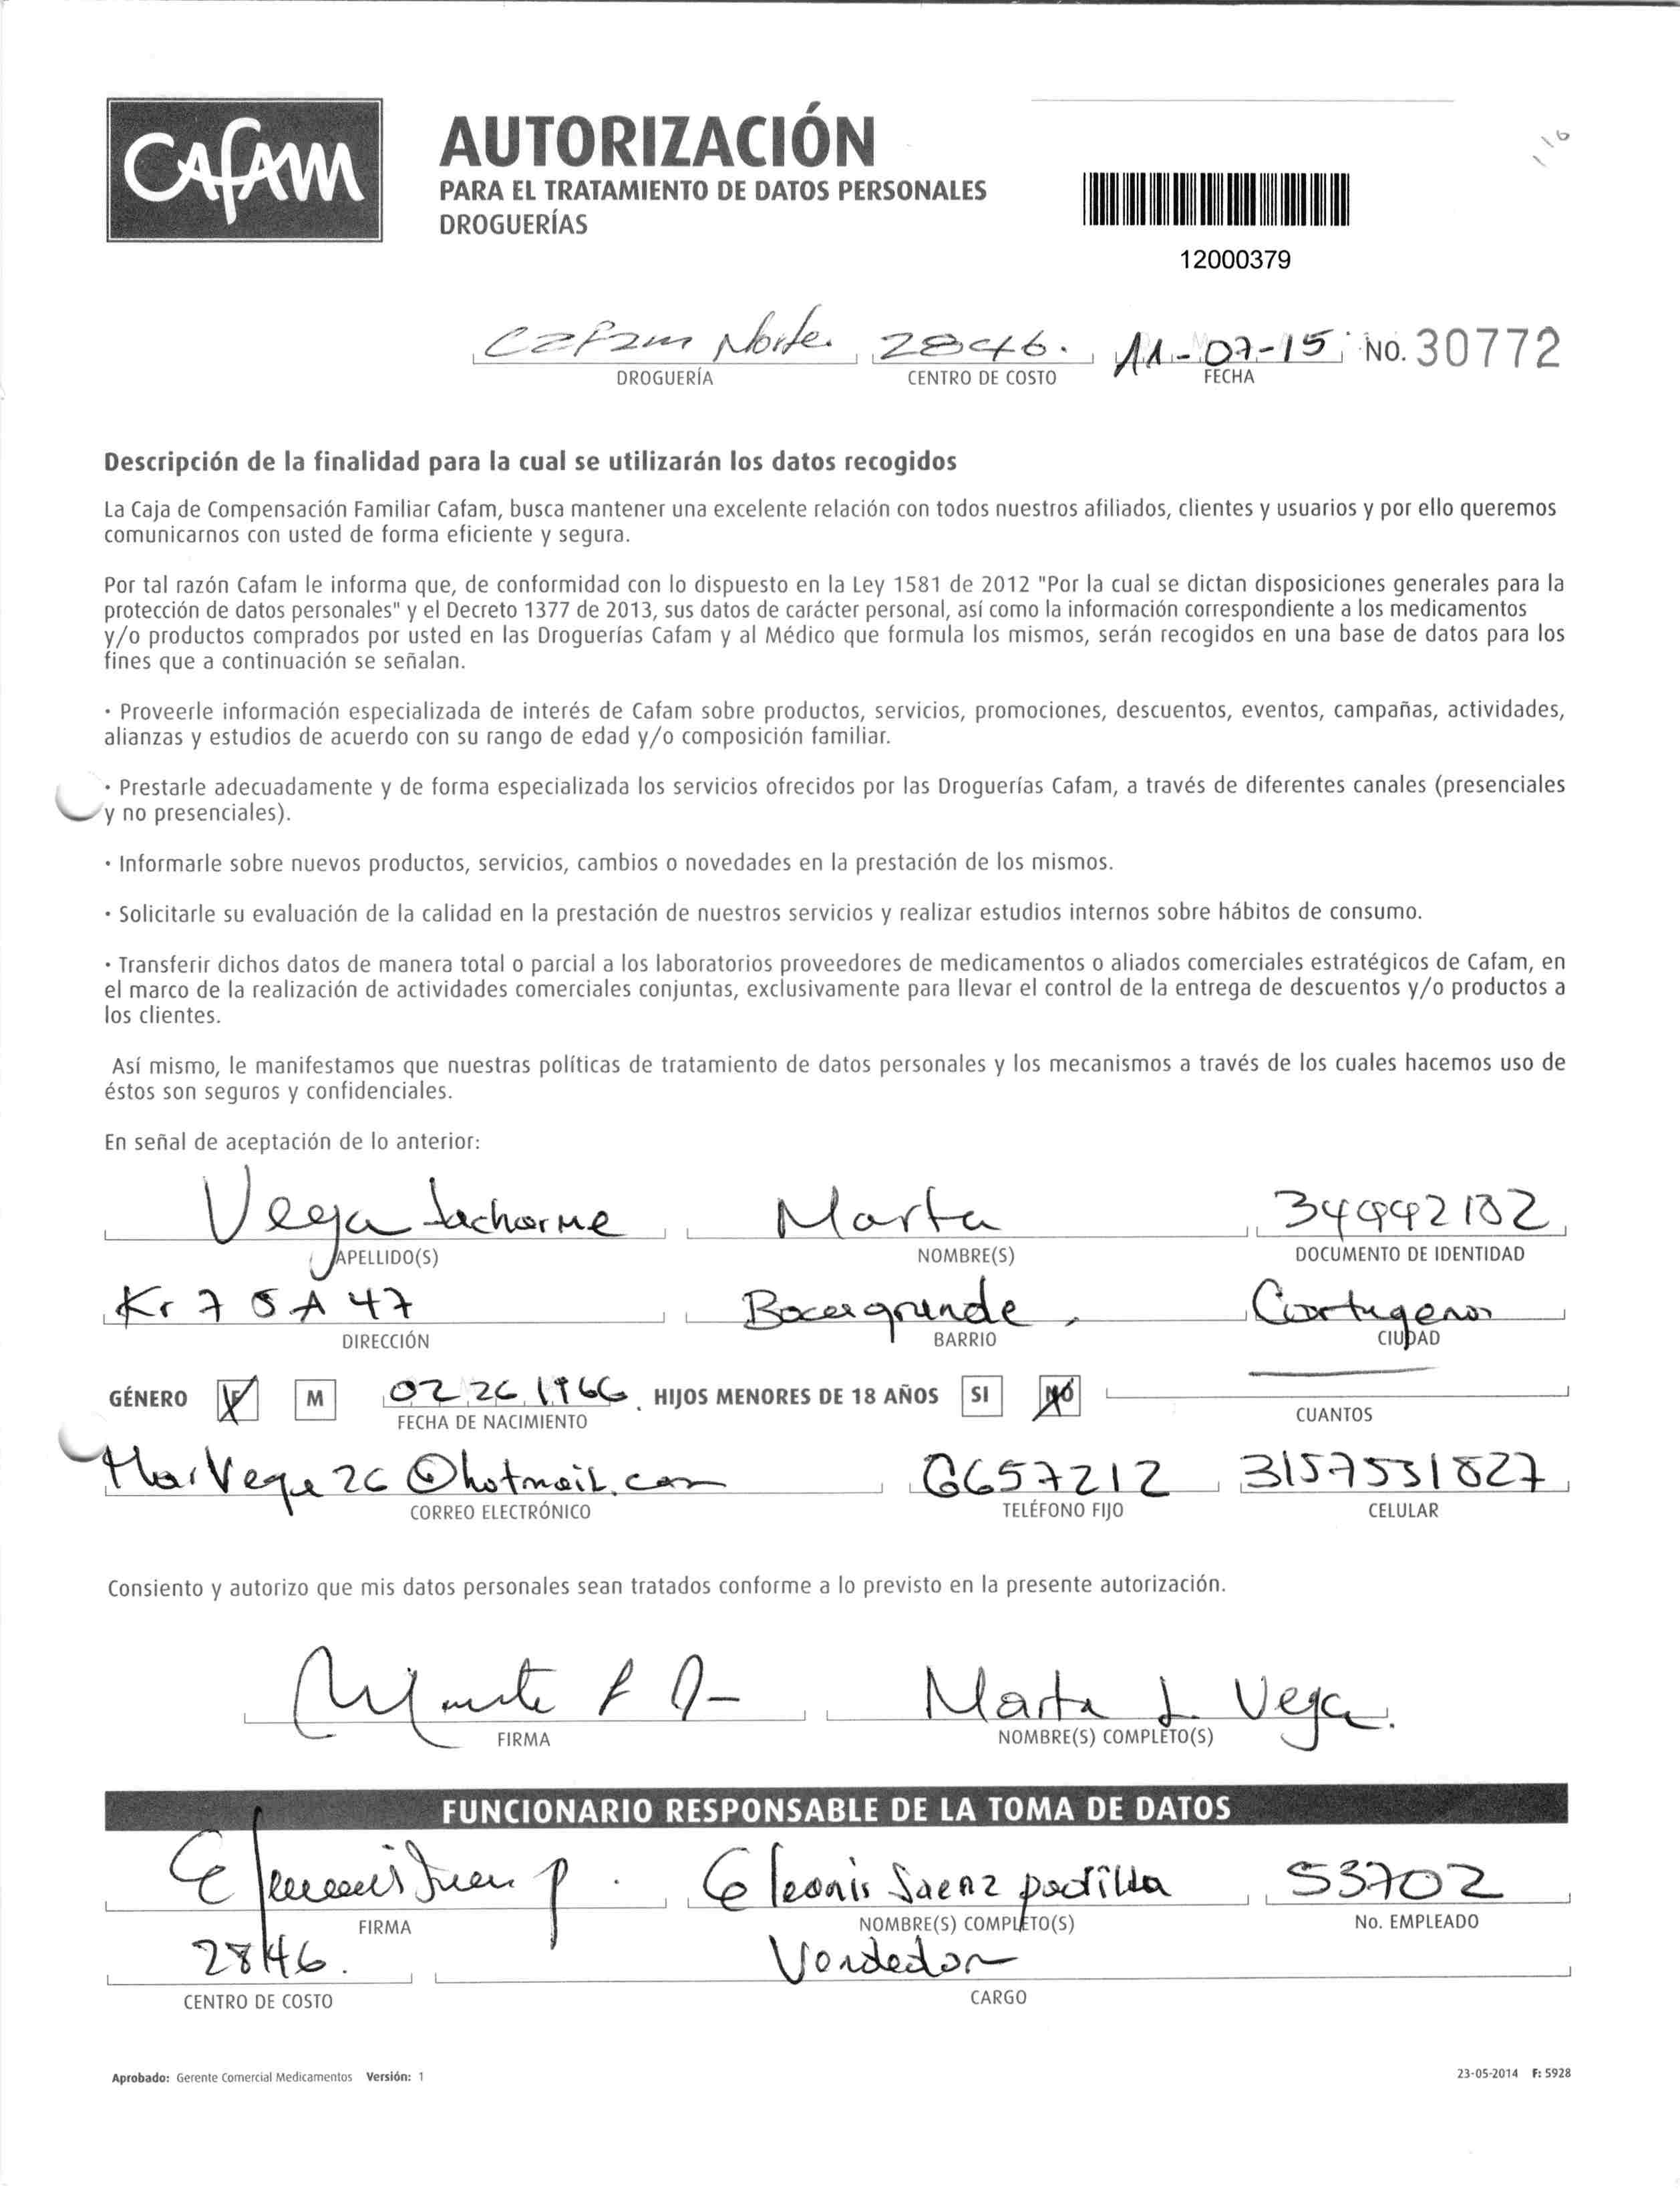 CAFAM
AUTORIZACIÓN
PARA EL TRATAMIENTO DE DATOS PERSONALES
DROGUERÍAS
12000379
Cafam Norte. 2846. 11-07-15 No. 30772
DROGUERÍA CENTRO DE COSTO FECHA
Descripción de la finalidad para la cual se utilizarán los datos recogidos
La Caja de Compensación Familiar Cafam, busca mantener una excelente relación con todos nuestros afiliados, clientes y usuarios y por ello queremos
comunicarnos con usted de forma eficiente y segura.
Por tal razón Cafam le informa que, de conformidad con lo dispuesto en la Ley 1581 de 2012 "Por la cual se dictan disposiciones generales para la
protección de datos personales" y el Decreto 1377 de 2013, sus datos de carácter personal, así como la información correspondiente a los medicamentos
y/o productos comprados por usted en las Droguerías Cafam y al Médico que formula los mismos, serán recogidos en una base de datos para los
fines que a continuación se señalan.
· Proveerle información especializada de interés de Cafam sobre productos, servicios, promociones, descuentos, eventos, campañas, actividades,
alianzas y estudios de acuerdo con su rango de edad y/o composición familiar.
· Prestarle adecuadamente y de forma especializada los servicios ofrecidos por las Droguerías Cafam, a través de diferentes canales (presenciales
y no presenciales).
· Informarle sobre nuevos productos, servicios, cambios o novedades en la prestación de los mismos.
· Solicitarle su evaluación de la calidad en la prestación de nuestros servicios y realizar estudios internos sobre hábitos de consumo.
· Transferir dichos datos de manera total o parcial a los laboratorios proveedores de medicamentos o aliados comerciales estratégicos de Cafam, en
el marco de la realización de actividades comerciales conjuntas, exclusivamente para llevar el control de la entrega de descuentos y/o productos a
los clientes.
Así mismo, le manifestamos que nuestras políticas de tratamiento de datos personales y los mecanismos a través de los cuales hacemos uso de
éstos son seguros y confidenciales.
En señal de aceptación de lo anterior:
Vega Marta
APELLIDO(S) NOMBRE(S) DOCUMENTO DE IDENTIDAD
Kr 7 5 A 47 Bocagrande Cartagena
DIRECCIÓN BARRIO CIUDAD
GÉNERO F M 02 26 1966 HIJOS MENORES DE 18 AÑOS SI NO
FECHA DE NACIMIENTO CUANTOS
MarVega26@hotmail.com 6657212 3157531827
CORREO ELECTRÓNICO TELÉFONO FIJO CELULAR
Consiento y autorizo que mis datos personales sean tratados conforme a lo previsto en la presente autorización.
Marta L Vega.
FIRMA NOMBRE(S) COMPLETO(S)
FUNCIONARIO RESPONSABLE DE LA TOMA DE DATOS
Eleonis Saenz padilla 53702
FIRMA NOMBRE(S) COMPLETO(S) No. EMPLEADO
2846. Vendedor
CENTRO DE COSTO CARGO
Aprobado: Gerente Comercial Medicamentos Versión: 1 23-05-2014 F: 5928